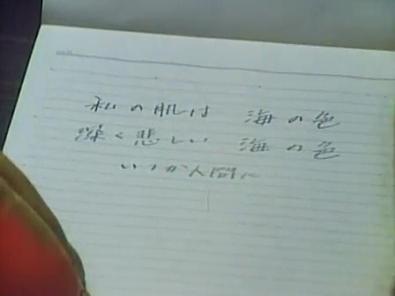 私の肌は 海の色
深く悲しい 海の色
いつか人間に